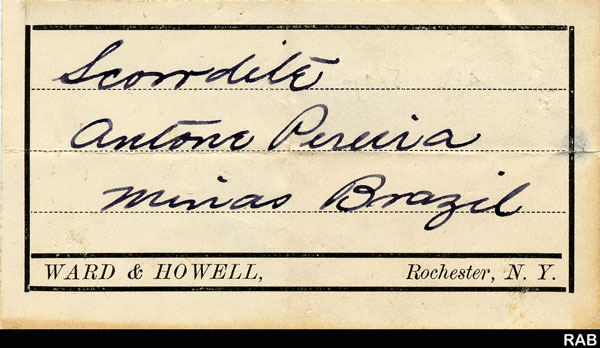 Scorrdite
Antone Pereira
Minas Brazil
WARD & HOWELL, Rochester, N. Y.
RAB